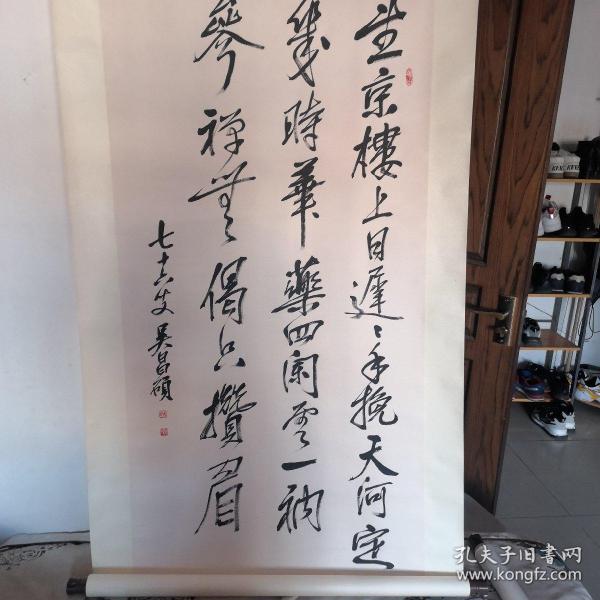 望京樓上日遲〻手挽天河定
幾時華藥四闌雲一衲
參禪無偈只攢眉
七十六叟吴昌碩
孔夫子旧書网
www.kongfz.com